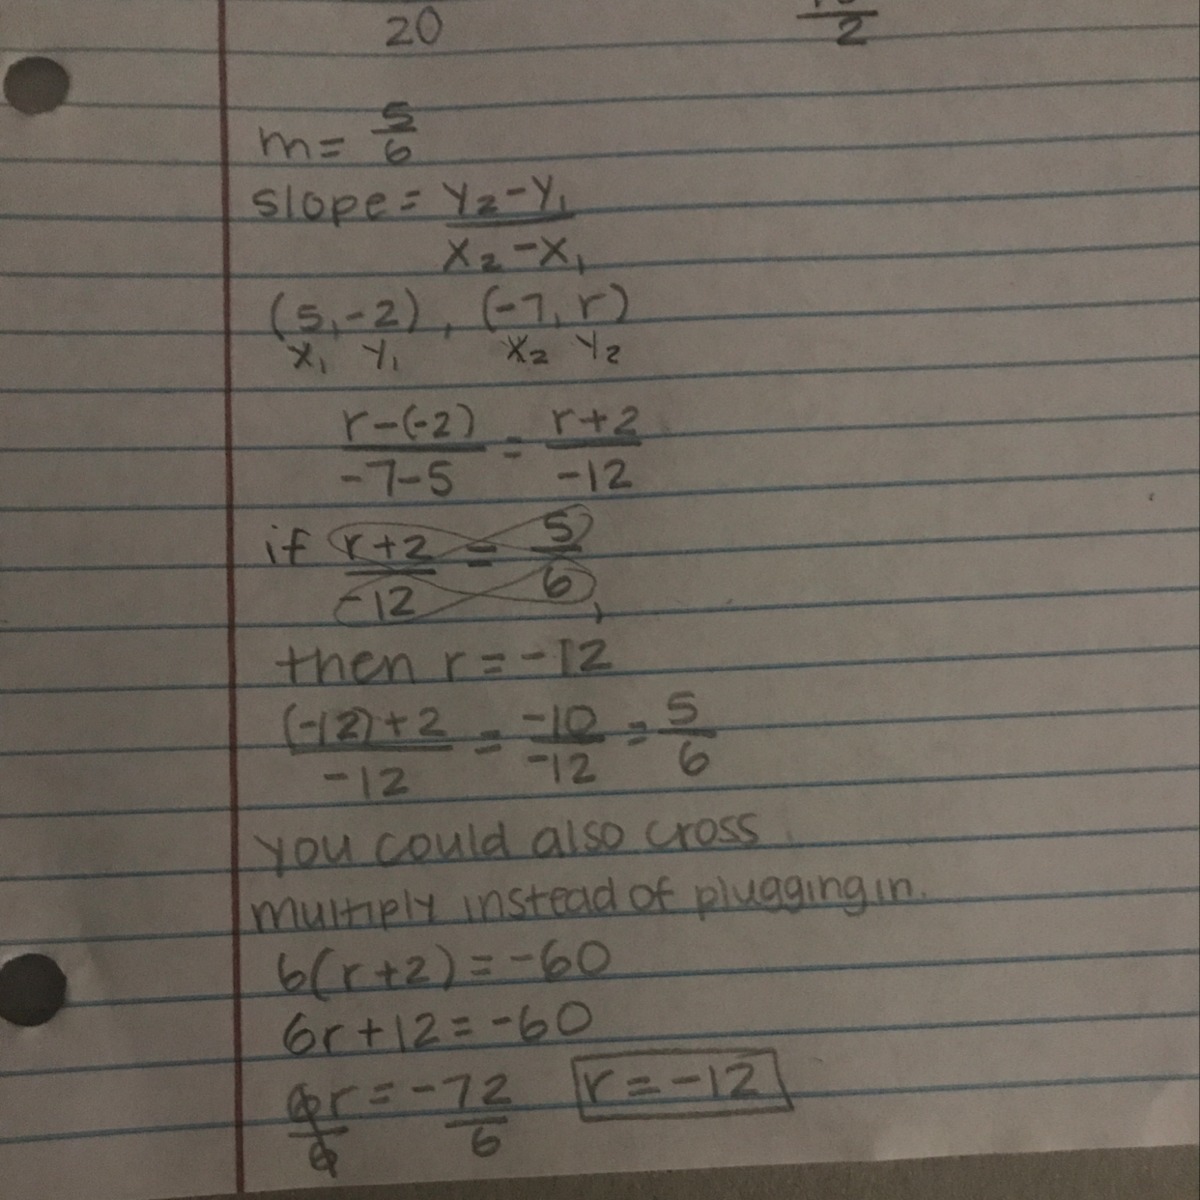 20
2
m = 5/6
slope = y₂-y₁/x₂-x₁
(5,-2), (-7, r)
x₁ y₁ x₂ y₂
r-(-2)/-7-5 = r+2/-12
if r+2/-12 = 5/6,
then r = -12
(-12)+2/-12 = -10/-12 = 5/6
you could also cross
multiply instead of plugging in.
6(r+2) = -60
6r+12 = -60
6r/6 = -72/6 r = -12